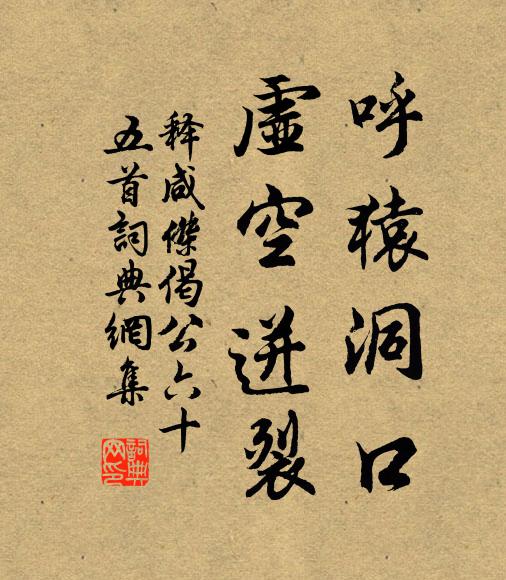 呼猿洞口
虛空迸裂
释咸傑偈公六十
五首詞典網集
詞典
网印